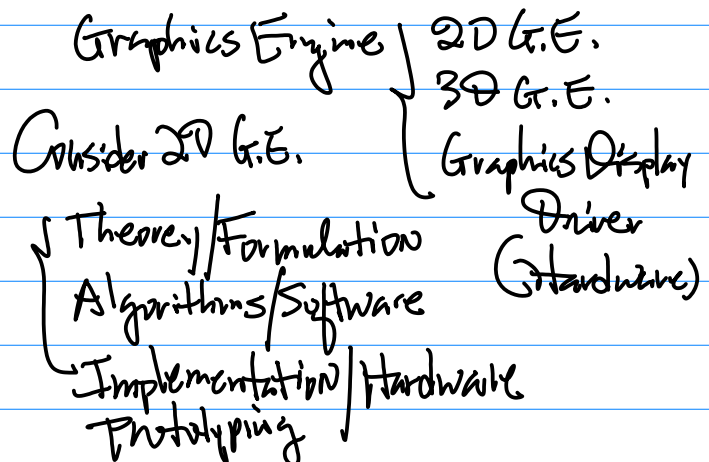 Graphics Engine { 2D G.E.
3D G.E.
Graphics Display
Driver
(Hardware)
Consider 2D G.E.
{ Theory/Formulation
Algorithms/Software
Implementation/Hardware
Prototyping